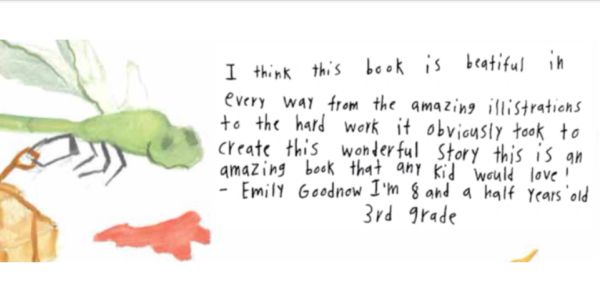 I think this book is beatiful in
every way from the amazing illistrations
to the hard work it obviously took to
create this wonderful story this is an
amazing book that any kid would love!
- Emily Goodnow I'm 8 and a half years old
3rd grade